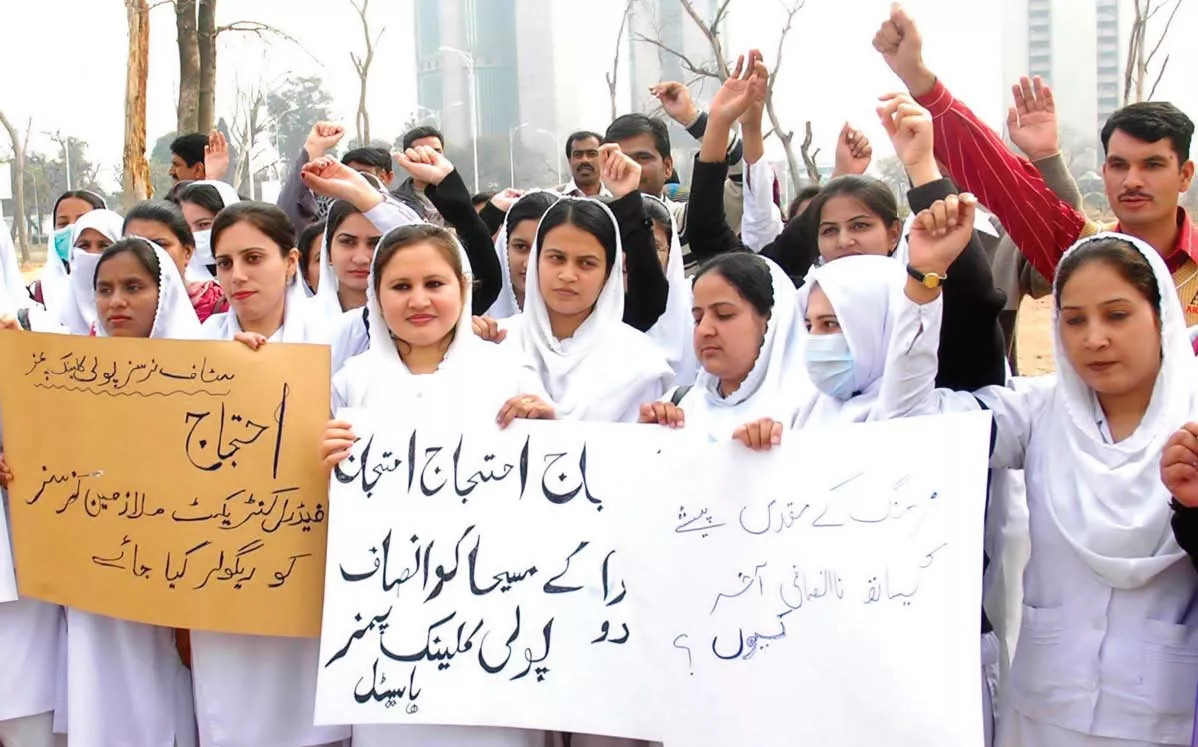 سٹاف نرسز پولی کلینک پمز
احتجاج
فیڈرل کنٹریکٹ ملازمین نرسز
کو ریگولر کیا جائے
باج احتجاج احتجاج
را کے مسیحا کو انصاف دو
پولی کلینک پمز
ہاسپٹل
نرسنگ کے مقدس پیشے
کیساتھ ناانصافی آخر
کیوں؟